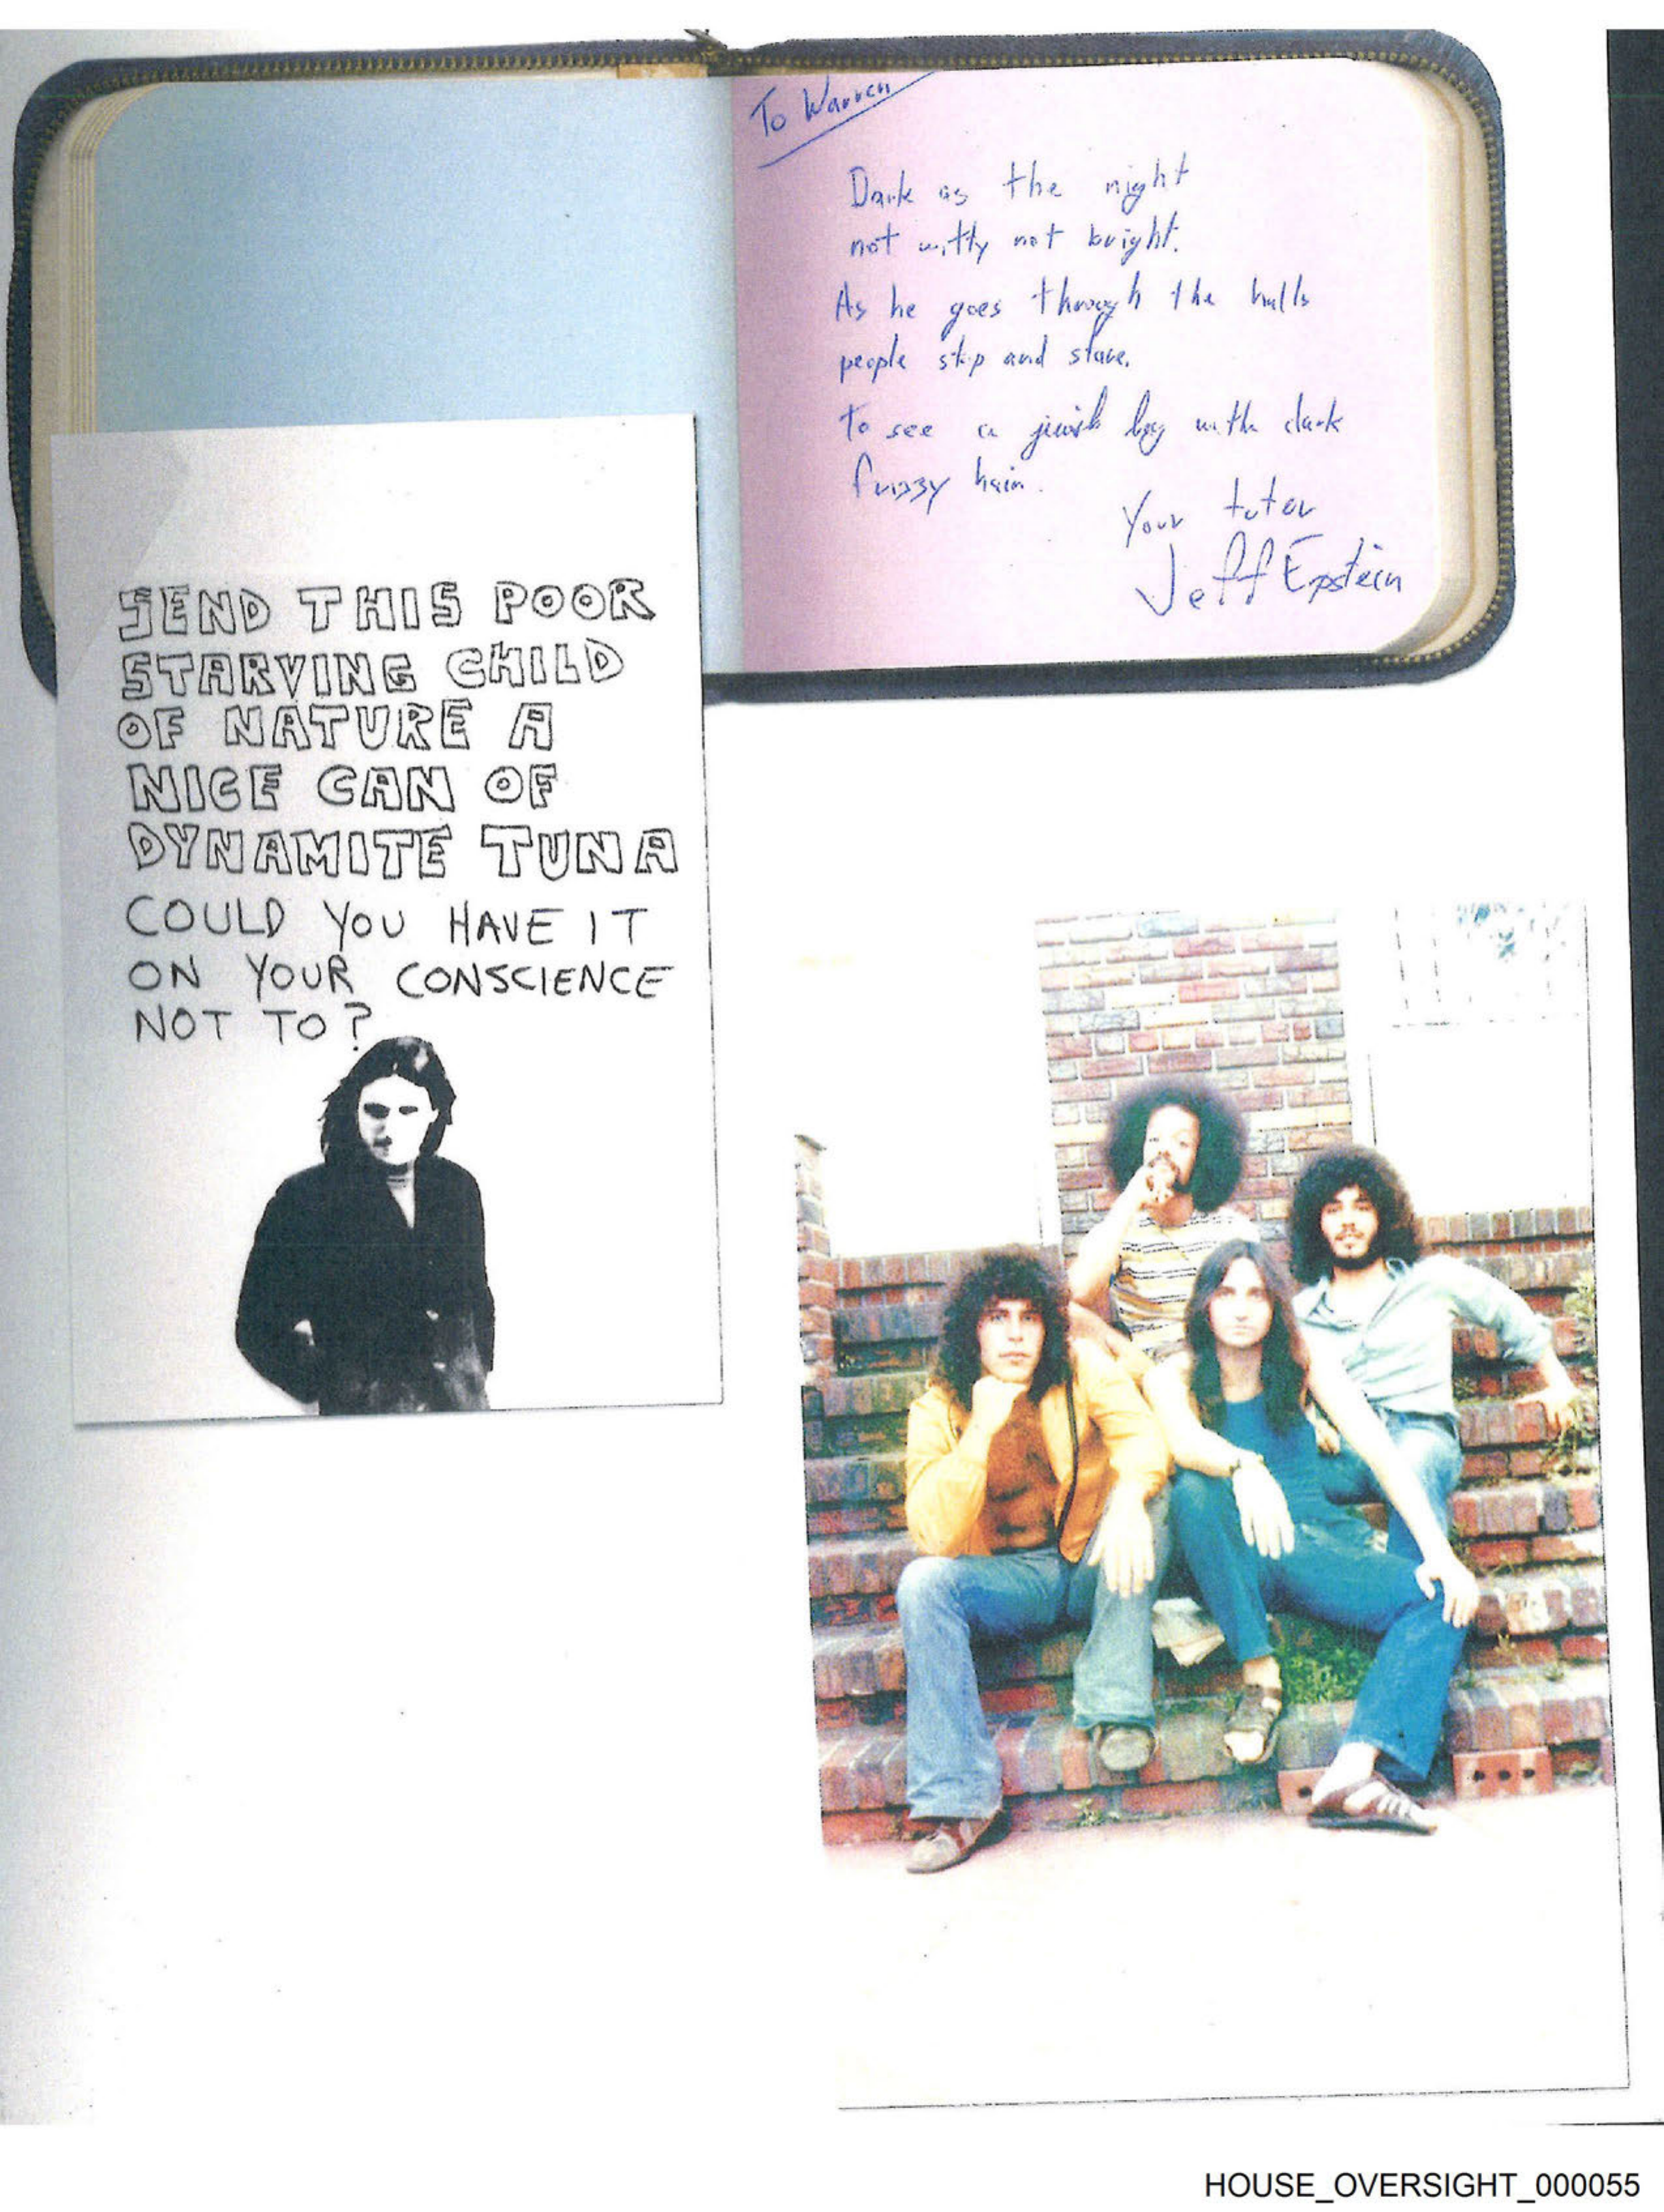 To Warren
Dark as the night
not witty not bright.
As he goes through the halls
people stop and stare.
To see a jewish boy with dark
frizzy hair.
Your tutor
Jeff Epstein
SEND THIS POOR
STARVING CHILD
OF NATURE A
NICE CAN OF
DYNAMITE TUNA
COULD YOU HAVE IT
ON YOUR CONSCIENCE
NOT TO?
HOUSE_OVERSIGHT_000055